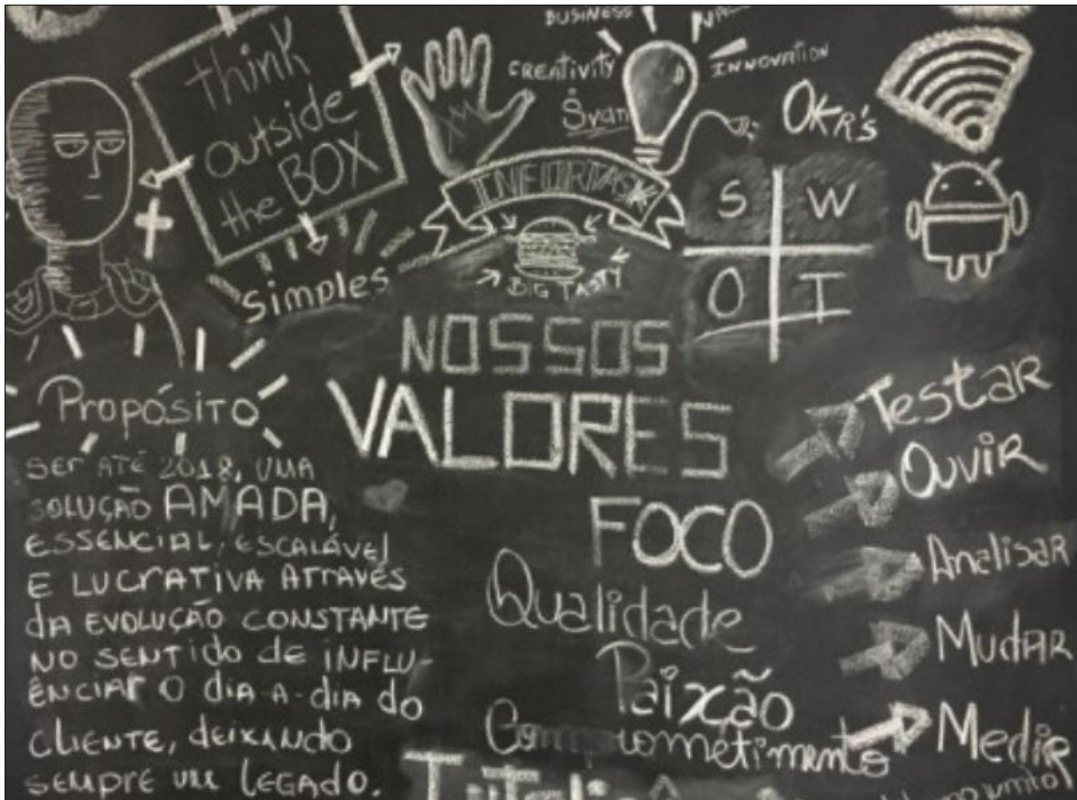 BUSINESS
CREATIVITY
INNOVATION
think
outside
the BOX
OKR's
S W
O T
BIG TASTY
Simples
NOSSOS
VALORES
Propósito
SER ATÉ 2018, UMA
SOLUÇÃO AMADA,
ESSENCIAL, ESCALÁVEL
E LUCRATIVA ATRAVÉS
DA EVOLUÇÃO CONSTANTE
NO SENTIDO DE INFLU-
ÊNCIAR O DIA-A-DIA DO
CLIENTE, DEIXANDO
SEMPRE UM LEGADO.
FOCO
Qualidade
Paixão
Comprometimento
Testar
Ouvir
Analisar
Mudar
Medir